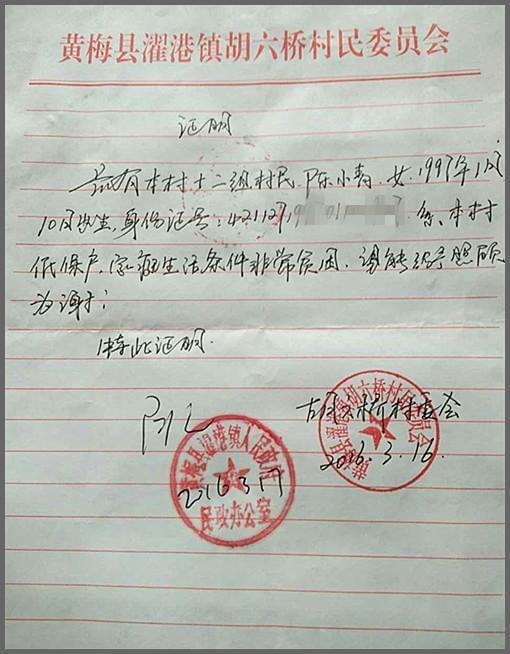 黄梅县濯港镇胡六桥村民委员会
证明
兹有本村十二组村民 陈小青, 女, 1997年1月
10日出生, 身份证号: 421127199 01 7 系本村
低保户, 家庭生活条件非常贫困, 望能给予照顾
为谢!
特此证明.
胡六桥村委会
2016.3.16.
黄梅县濯港镇胡六桥村民委员会
2016.3.17
黄梅县濯港镇人民政府
民政办公室